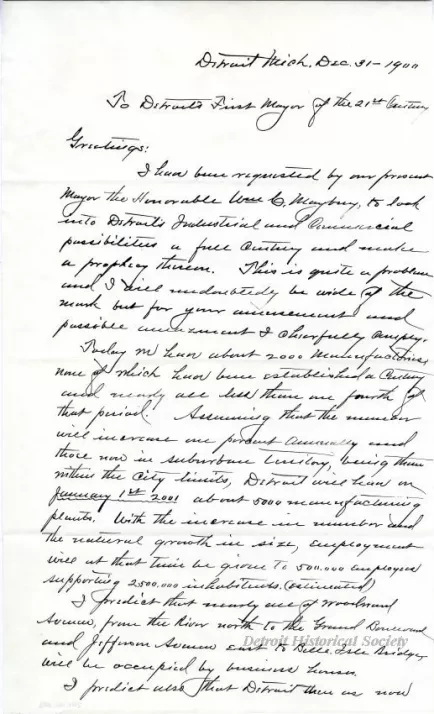 Detroit Mich. Dec. 31 - 1900
To Detroit's First Mayor of the 21st Century
Greetings:
I have been requested by our present
Mayor the Honorable Wm C. Maybury, to look
into Detroit's Industrial and Commercial
possibilities a full Century and make
a prophecy thereon. This is quite a problem
and I will undoubtedly be wide of the
mark but for your amusement and
possible amazement I cheerfully comply.
Today we have about 2000 Manufactories,
none of which have been established a Century
and nearly all less than one fourth of
that period. Assuming that the number
will increase one percent annually and
those now in suburban territory, being then
within the City limits, Detroit will have on
January 1st 2001 about 5000 manufacturing
plants. With the increase in number and
the natural growth in size, employment
will at that time be given to 500.000 employees
supporting 2.500.000 inhabitants. (estimated)
I predict that nearly all of Woodward
Avenue, from the River north to the Grand Boulevard
and Jefferson Avenue east to Belle Isle Bridge,
will be occupied by business houses.
I predict also that Detroit then as now
Detroit Historical Society